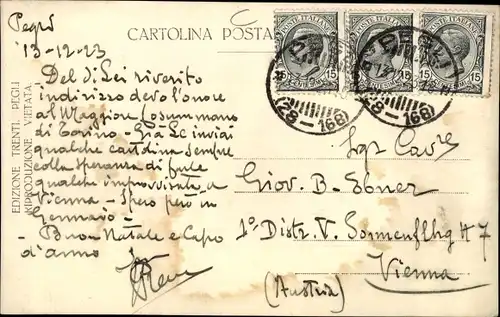 Pegli
13-12-23
CARTOLINA POSTA
POSTE ITALIANE
POSTE ITALIANE
POSTE ITALIANE
15 15 15 15
PEGLI
(28-168)
(28-168)
EDIZIONE TRENTI, PEGLI
RIPRODUZIONE VIETATA
Del di Lei riverito
indirizzo devo l'onore
al Maggiore Losummano
di Torino - Già Le inviai
qualche cartolina sempre
colla speranza di farle
qualche improvvisata a
Vienna - Spero però in
Gennaio -
- Buon Natale e Capo
d'anno
Sigr Cavre
Giov. B. Ebner
1° Distr. V. Sonnenflhg № 7
Vienna
(Austria)